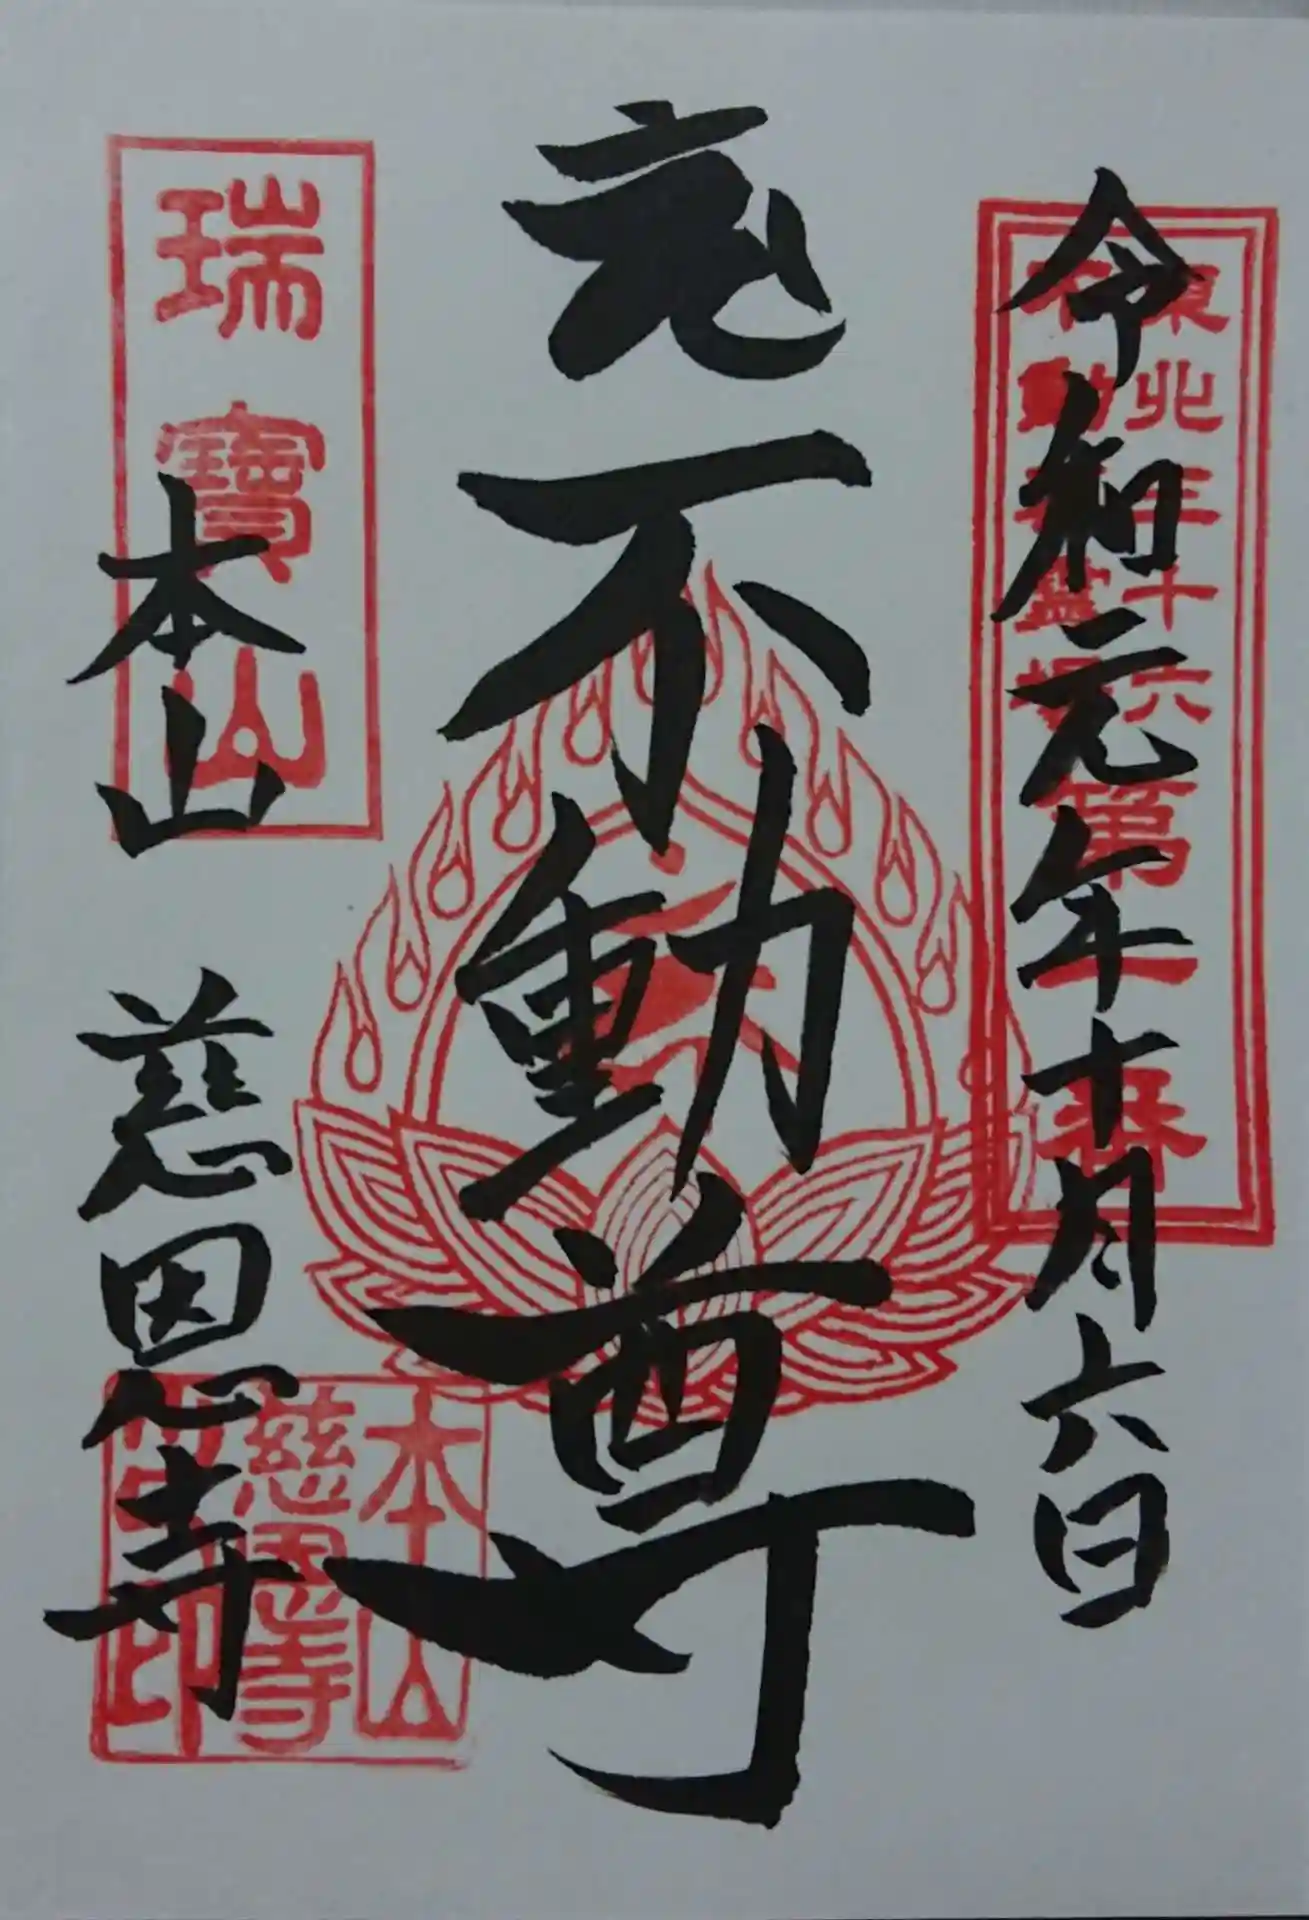 令和元年十月六日
東北三十六
不動尊靈場
第一番
不動尊
瑞寶山
本山 慈恩寺
本山
慈恩寺
印